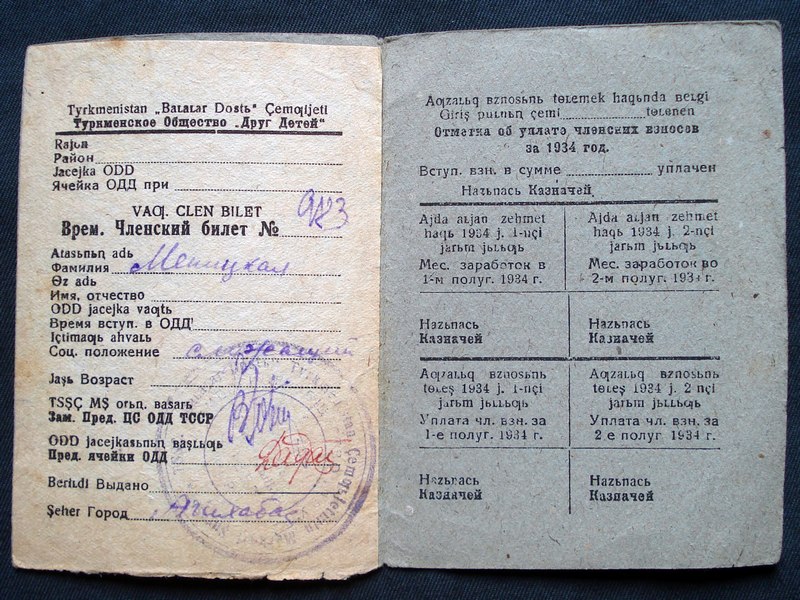 Tyrkmenistan „Balalar Dostь" Çemƣьjeti
Туркменское Общество „Друг Детей"
Rajьn
Район
Jacejka ODD
Ячейка ОДД при
VAQL. CLEN BILET
Врем. Членский билет № 923
Atasьnьꞑ adь
Фамилия Меницкая
Ɵz adь
Имя, отчество
ODD jacejka vaqtь
Время вступ. в ОДД
Içtimaqь ahvalь
Соц. положение служащий
Jaşь Возраст
TSSÇ MŞ orьn. basarь
Зам. Пред. ЦС ОДД ТССР
ODD jacejkasьnьꞑ başlьqь
Пред. ячейки ОДД
Berlьdi Выдано
Şeher Город Ашхабад
Aqzalьq вznosьnь tɵlemek haqьnda belgi
Giriş pulьnьꞑ çemi tɵlenen
Отметка об уплате членских взносов
за 1934 год.
Вступ. взн. в сумме уплачен
Hazьnaсь Казначей
Ajda aljan zehmet
haqь 1934 j. 1-nçi
jarьm jьllьqь
Мес. заработок в
1-м полуг. 1934 г.
Hazьnaсь
Казначей
Ajda aljan zehmet
haqь 1934 j. 2-nçi
jarьm jьllьqь
Мес. заработок во
2-м полуг. 1934 г.
Hazьnaсь
Казначей
Aqzalьq вznosьnь
tɵleş 1934 j. 1-nçi
jarьm jьllьqь
Уплата чл. взн. за
1-е полуг. 1934 г.
Hazьnaсь
Казначей
Aqzalьq вznosьnь
tɵleş 1934 j. 2-nçi
jarьm jьllьqь
Уплата чл. взн. за
2 е полуг. 1934 г.
Hazьnaсь
Казначей